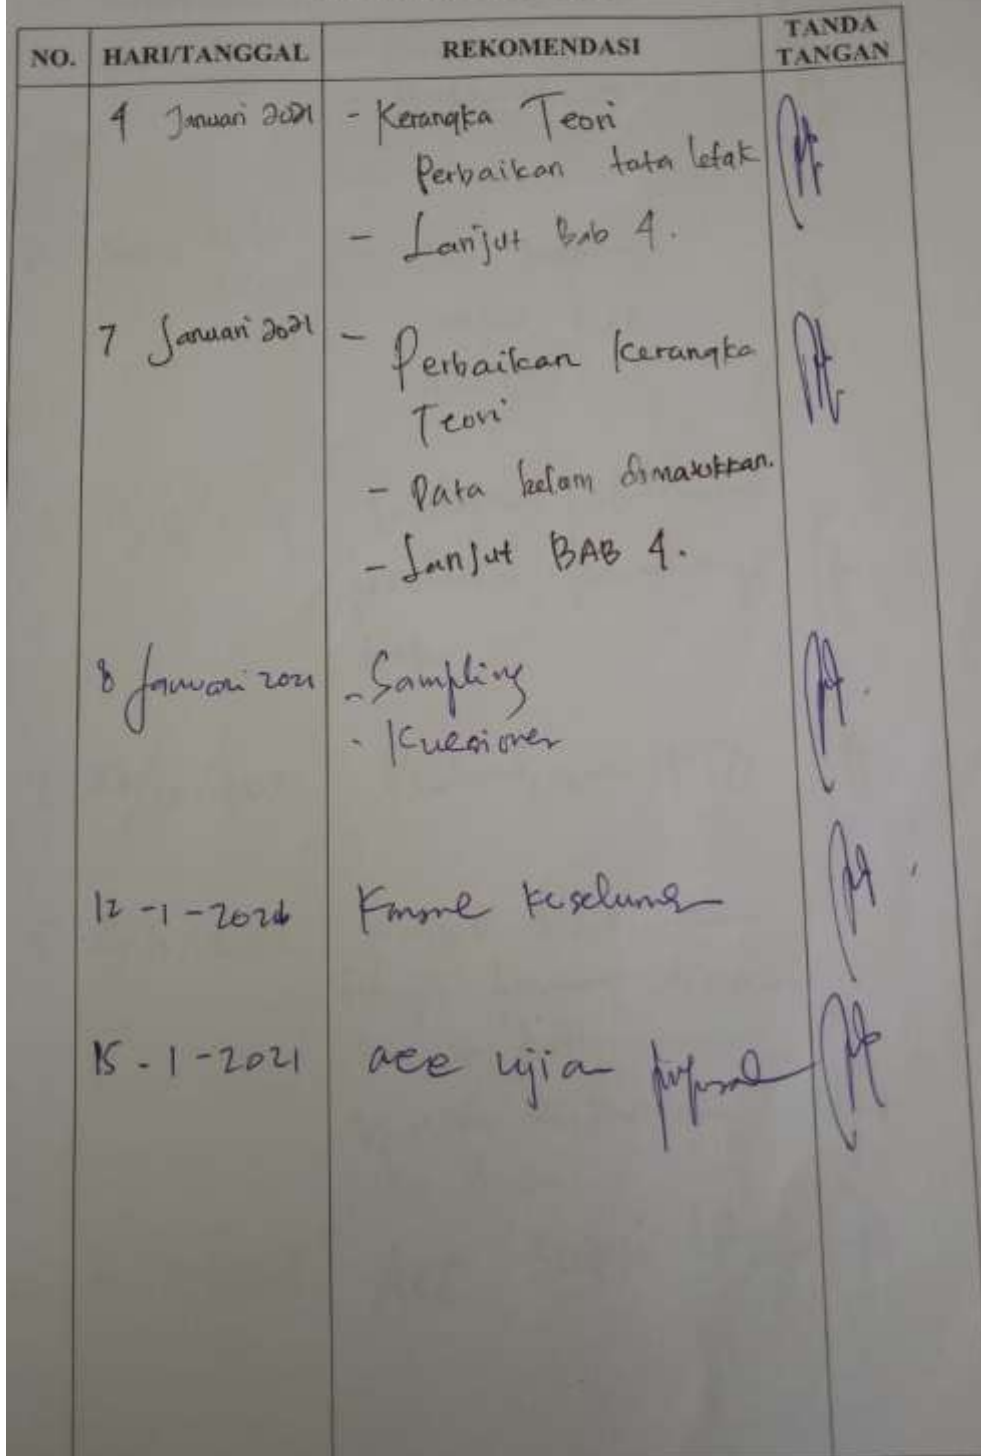 NO. HARI/TANGGAL REKOMENDASI TANDA TANGAN
4 Januari 2021 - Kerangka Teori
Perbaikan tata letak
- Lanjut Bab 4.
7 Januari 2021 - Perbaikan Kerangka
Teori
- Data belum dimasukkan.
- Lanjut BAB 4.
8 Januari 2021 - Sampling
- Kuesioner
12-1-2021
15-1-2021 acc ujian proposal